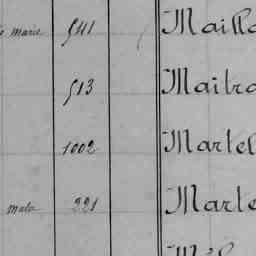 marie 541 Mailla
513 Maitra
1002 Martel
mata 221 Marte